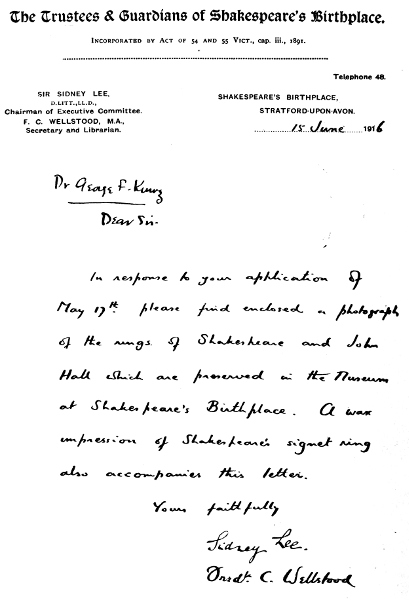 The Trustees & Guardians of Shakespeare's Birthplace.
INCORPORATED BY ACT OF 54 AND 55 VICT., cap. iii., 1891.
Telephone 48.
SIR SIDNEY LEE,
D.LITT., LL.D.,
Chairman of Executive Committee.
F. C. WELLSTOOD, M.A.,
Secretary and Librarian.
SHAKESPEARE'S BIRTHPLACE,
STRATFORD-UPON-AVON.
15 June 1916
Dr George F. Kunz
Dear Sir.
In response to your application of
May 17th please find enclosed a photograph
of the rings of Shakespeare and John
Hall which are preserved in the Museum
at Shakespeare's Birthplace. A wax
impression of Shakespeare's signet ring
also accompanies this letter.
Yours faithfully
Sidney Lee.
C. Wellstood